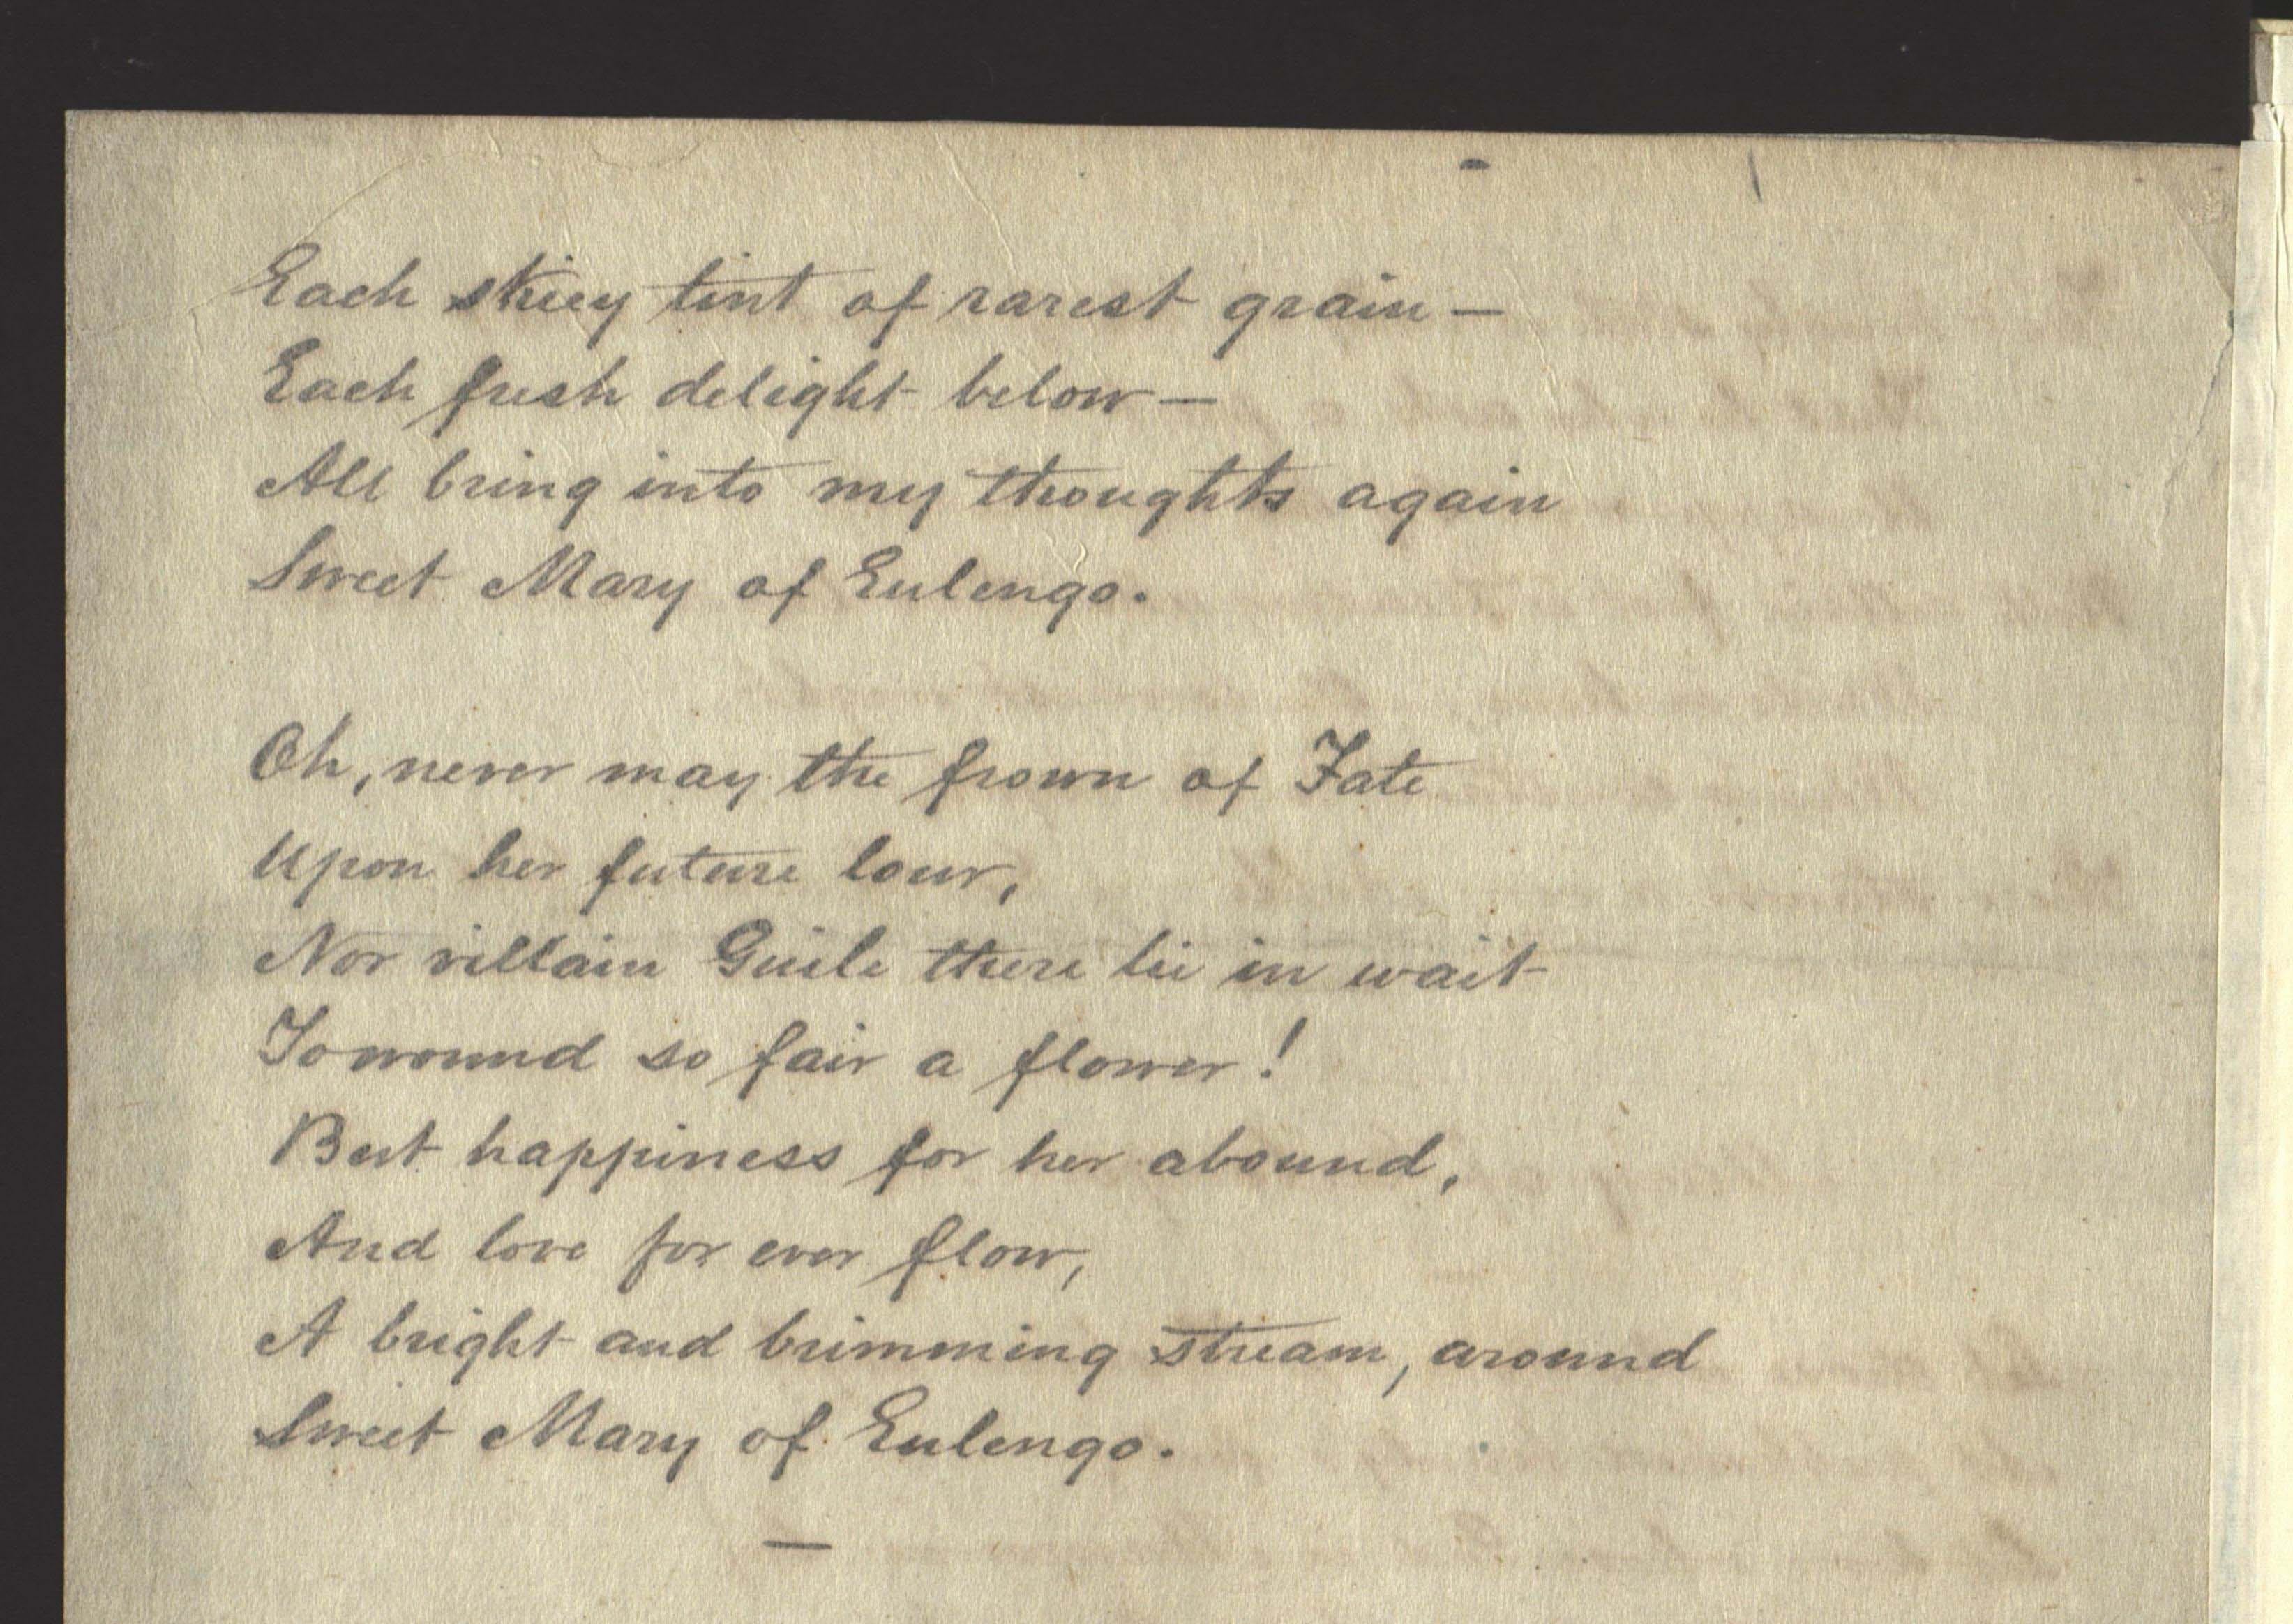 Each skiey tint of rarest grain —
Each fresh delight below —
All bring into my thoughts again
Sweet Mary of Eulengo.
Oh, never may the frown of Fate
Upon her future lour,
Nor villain Guile there lie in wait
To wound so fair a flower!
But happiness for her abound,
And love for ever flow,
A bright and brimming stream, around
Sweet Mary of Eulengo.
—